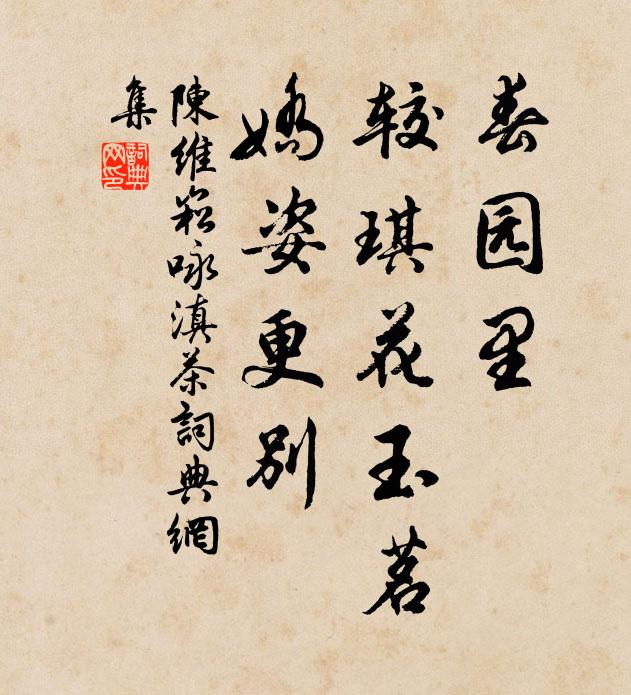 春园里
较琪花玉茗
娇姿更别
陳維崧咏滇茶詞典網
集
詞典網印